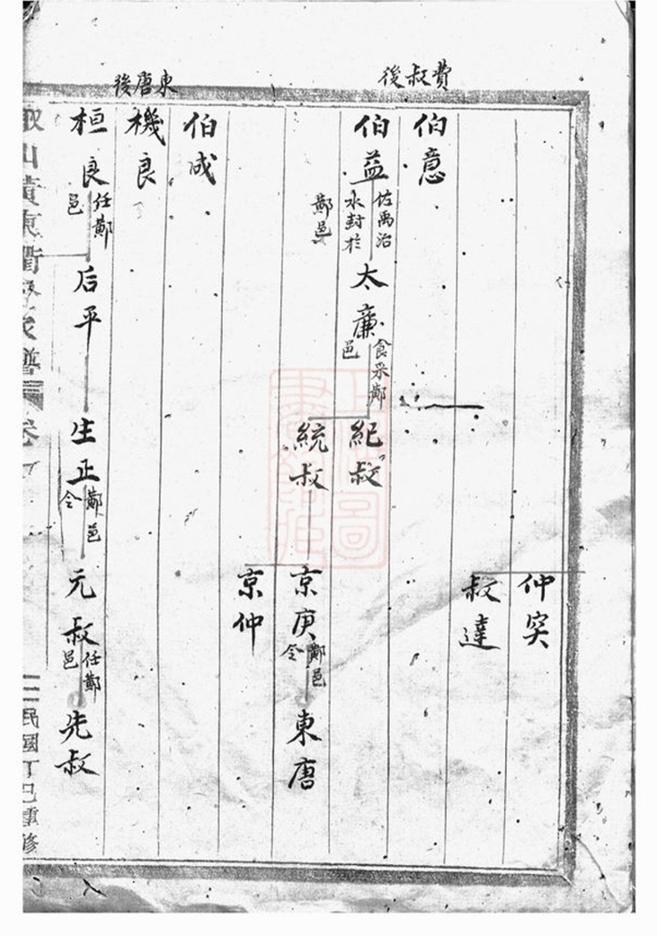 費叔後
東唐後
仲突
叔達
伯意
伯益 佐禹治水封於鄚邑
太廉 食采鄚邑
紀叔
統叔
京庚 鄚邑令
東唐
京仲
伯成
機良
桓良 任鄚邑
后平
生正 鄚邑令
元叔 任鄚邑
先叔
民國丁巳重修